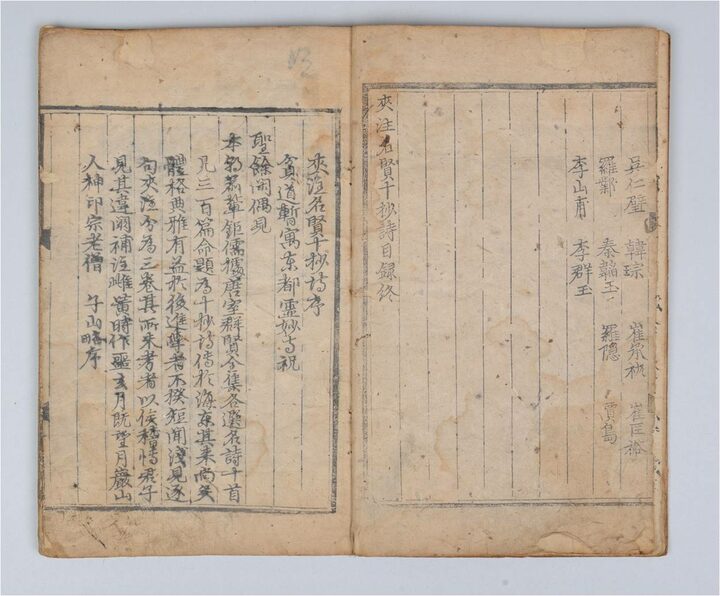 吳仁璧 韓琮 崔承祐 崔匡裕
羅鄴 秦韜玉 羅隱 賈島
李山甫 李群玉
夾注名賢十抄詩目録終
夾注名賢十抄詩序
貧道暫寓東都靈妙寺祝
聖餘閑偶見
本朝前輩鉅儒據唐室群賢全集各選名詩十首
凡三百篇命題為十抄詩傳於海東其来尚矣
體格典雅有益於後進學者不揆短聞淺見逐
句夾注分為三卷其所未考者以俟稽博君子
見其違闕補注雌黃時作噩玄月既望月巖山
人神印宗老僧 子山略序